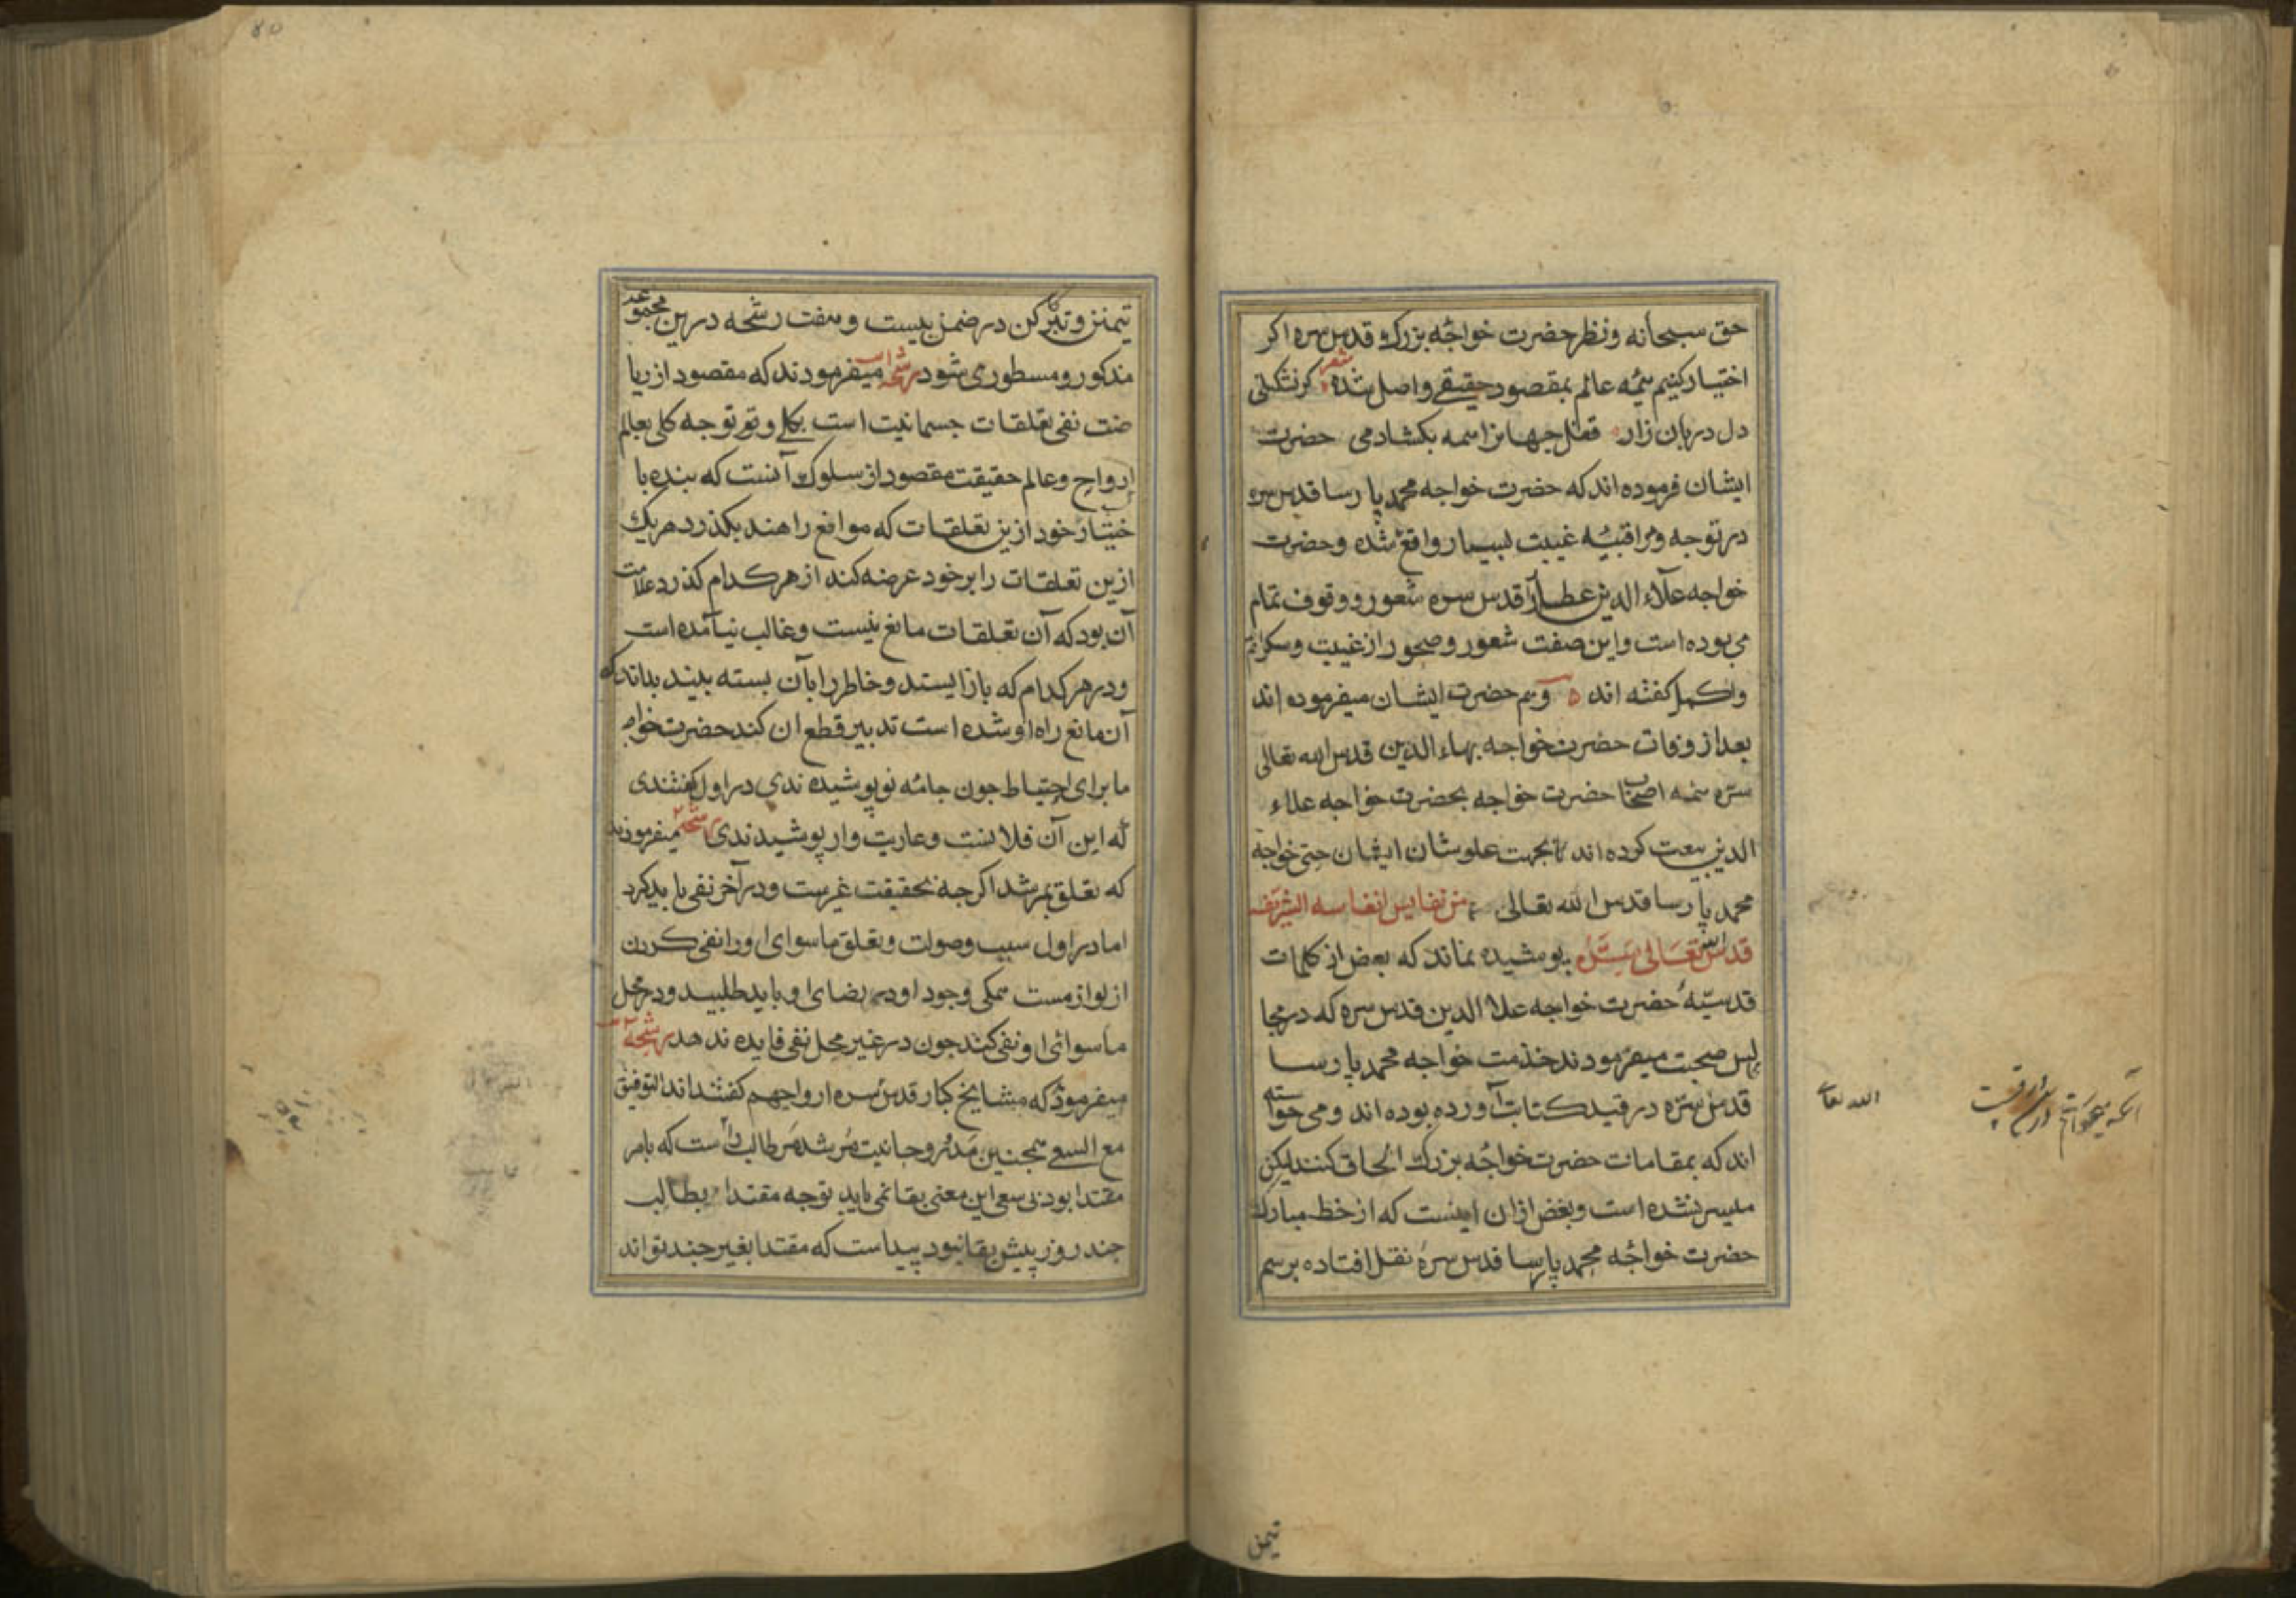 حق سبحانه ونظر حضرت خواجه بزرك قدس سره اكر
اختيار كنيم همه عالم بمقصود حقيقے واصل شده شعر كرنشكلتى
دل دربان زار قفل جهانرا همه بكشادمى حضرت
ايشان فرموده اند كه حضرت خواجه محمد پارسا قدس سره
در توجه ومراقبه غيبت بسيار واقع شده وحضرت
خواجه علآء الدين عطار را قدس سره شعور ووقوف تمام
مى بوده است واين صفت شعور وصحور از غيبت وسكر اتم
واكمل كفته اند وهم حضرت ايشان ميفرموده اند
بعد از وفات حضرت خواجه بهاء الدين قدس الله تعالى
سره همه اصحاب حضرت خواجه بحضرت خواجه علاء
الدين بيعت كرده اند بجهت علو شان ايشان حتى خواجه
محمد پارسا قدس الله تعالى من نفايس انفاسه الشريفه
قدس الله تعالى سره پوشيده نماند كه بعض از كلمات
قدسيه حضرت خواجه علا الدين قدس سره كه در مجا
لس صحبت ميفرمودند خذمت خواجه محمد پارسا
قدس سره در قيد كتابت آورده بوده اند ومى خواسته
اند كه بمقامات حضرت خواجه بزرك الحاق كنند ليكن
ميسر نشده است وبعض ازان اينست كه از خط مبارك
حضرت خواجه محمد پارسا قدس سره نقل افتاده برسم
الله تعالى
تيمن
تيمن وتبركن در ضمن بيست وهفت رشحه درين مجموعه
مذكور ومسطور مى شود رشحه ميفرمودند كه مقصود از ريا
ضت نفى تعلقات جسمانيت است بكلے وتوجه كلى بعالم
ارواح وعالم حقيقت مقصود از سلوك آنست كه بنده با
ختيار خود ازين تعلقات كه موانع راهند بكذرد هريك
ازين تعلقات را بر خود عرضه كند از هر كدام كذرد علامت
آن بود كه آن تعلقات مانع نيست وغالب نيآمده است
ودر هر كدام كه باز ايستد وخاطر را بآن بسته بيند بداند كه
آن مانع راه او شده است تدبير قطع ان كند حضرت خواجه
ما براى احتياط جون جامه نو پوشيده ندى در اول كفتندى
كه اين آن فلانست وعاريت وار پوشيدندى رشحه ميفرمودند
كه تعلق بمرشد اكرجه بحقيقت غيرست ودر آخر نفى بايد كرد
اما در اول سبب وصولت وتعلق ماسواى او را نفى كردن
از لوازمست همكى وجود او رضاى او بايد طلبيد ودر محل
ماسوائى او نفى كند جون در غير محل نفى فايده ندهد رشحه
ميفرمود كه مشايخ كبار قدس سره ارواجهم كفتند اند التوفيق
مع السعى همجنين مدد روحانيت مرشد مر طالب را است كه بامر
مقتدا بود نى سعى اين معنى بقا نمى يابد توجه مقتدا بطالب
جند روز پيش بقا نبود پيداست كه مقتدا بغير جند تواند